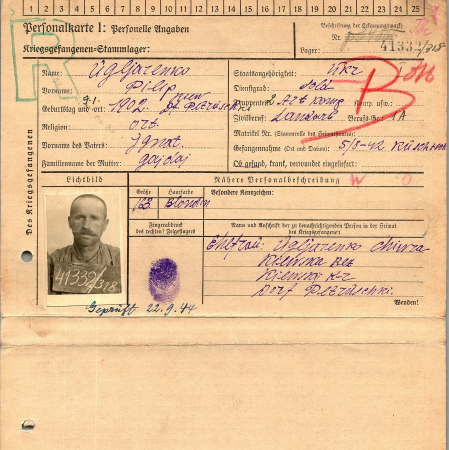 1 2 3 4 5 6 7 8 9 10 11 12 13 14 15 16 17 18 19 20 21 22 23 24 25
R
Personalkarte I: Personelle Angaben
Kriegsgefangenen-Stammlager:
Beschriftung der Erkennungsmarke
Nr.
Lager: 41332/318
Des Kriegsgefangenen
Name: Ugljarenko
Vorname: Pilip
Geburtstag und -ort: 9.1. 1902
Religion: Ort
Vorname des Vaters: Ignat
Familienname der Mutter: gajdaj
Staatsangehörigkeit: Ukr
Dienstgrad: Sold
Truppenteil: Komp. usw.:
Zivilberuf: Landarb Berufs-Gr.: 1A
Matrikel Nr. (Stammrolle des Heimatstaates):
Gefangennahme (Ort und Datum): 5/8-42
Ob gesund, krank, verwundet eingeliefert:
Lichtbild
Nähere Personalbeschreibung
W O
Größe
Haarfarbe
Besondere Kennzeichen:
163
Blondin
Fingerabdruck
des rechten! Zeigefingers
Name und Anschrift der zu benachrichtigenden Person in der Heimat
des Kriegsgefangenen:
Ehefrau: Ugljarenko
Kiewska
Kiewski
Dorf Petruschki
41332
318
Wenden!
Geprüft 22.9.44